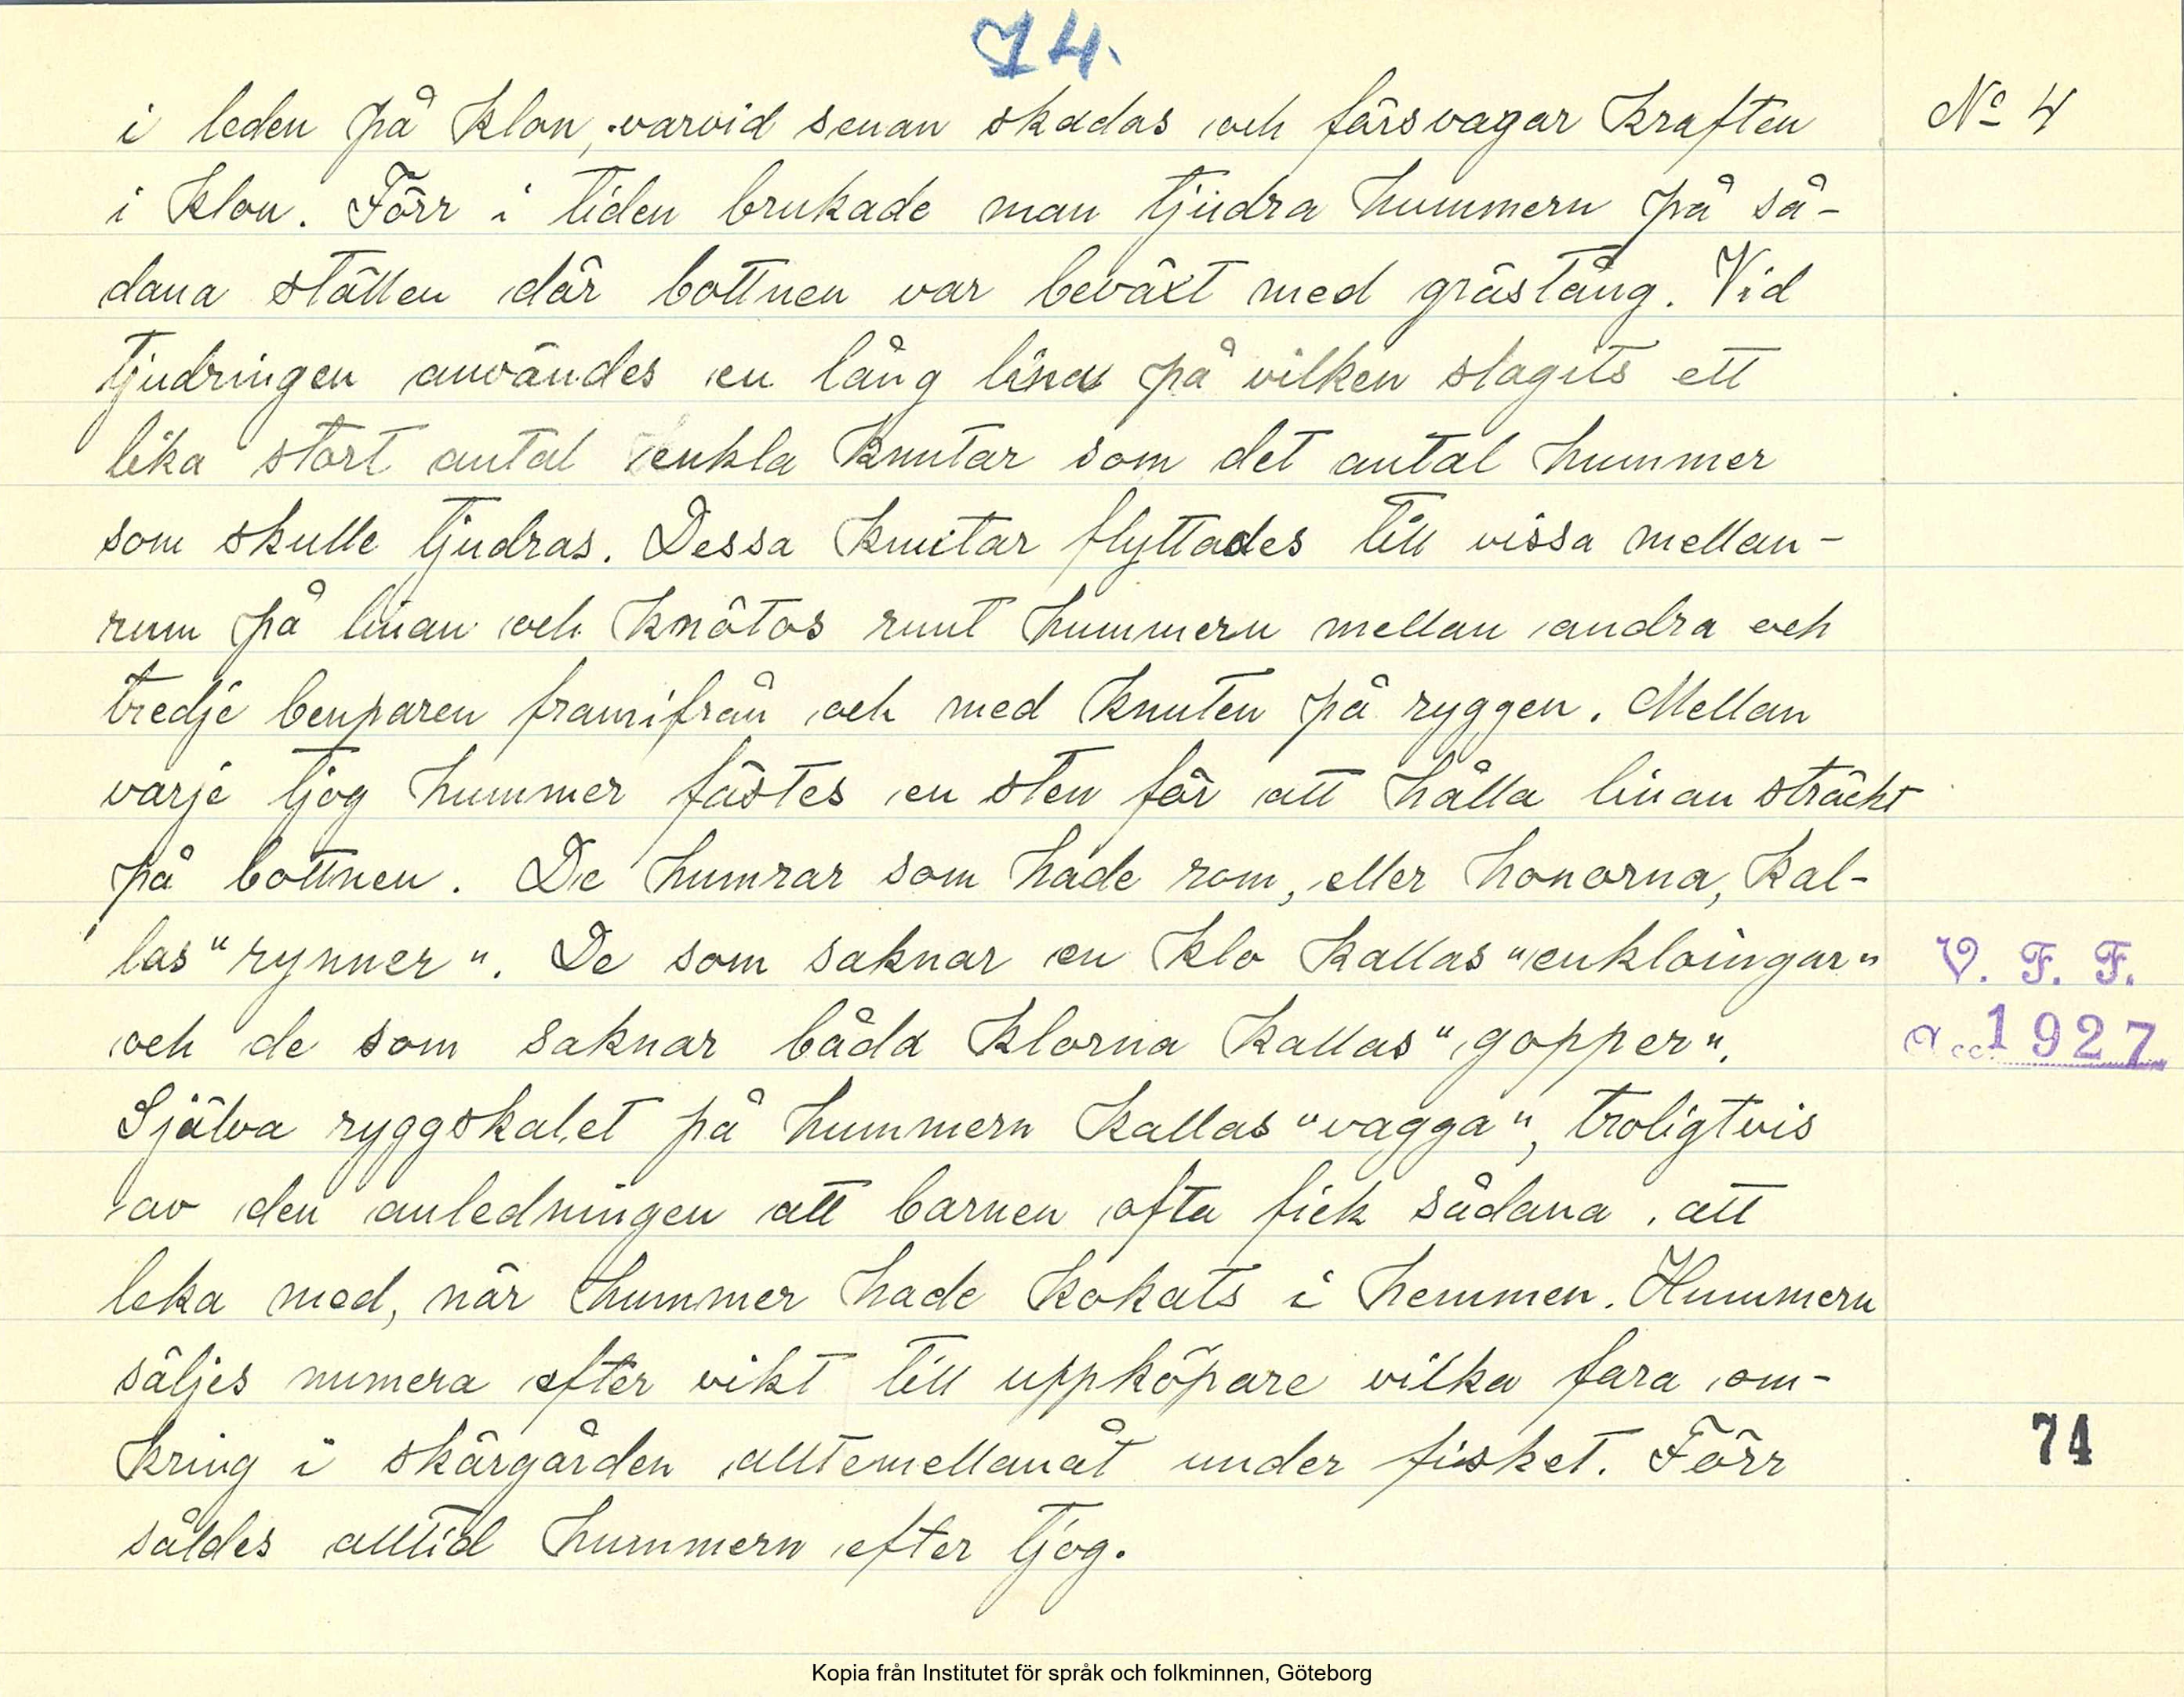 74.
i leden på klon, varvid senan skadas och försvagar kraften
i klon. Förr i tiden brukade man tjudra hummern på så-
dana ställen där bottnen var beväxt med grästång. Vid
tjudringen användes en lång lina på vilken slagits ett
lika stort antal enkla knutar som det antal hummer
som skulle tjudras. Dessa knutar flyttades till vissa mellan-
rum på linan och knötos runt hummern mellan andra och
tredje benparen framifrån och med knuten på ryggen. Mellan
varje tjog hummer fästes en sten för att hålla linan sträckt
på bottnen. De humrar som hade rom, eller honorna, kal-
las "rynner". De som saknar en klo kallas "enkloingar"
och de som saknar båda klorna kallas "gopper".
Själva ryggskalet på hummern kallas "vagga", troligtvis
av den anledningen att barnen ofta fick sådana att
leka med, när hummer hade kokats i hemmen. Hummern
säljes numera efter vikt till uppköpare vilka fara om-
kring i skärgården alltemellanåt under fisket. Förr
såldes alltid hummern efter tjog.
No 4
V. F. F.
Acc. 1927
74
Kopia från Institutet för språk och folkminnen, Göteborg